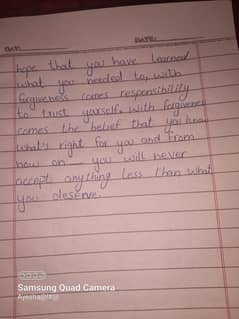 DATE:
hope that you have learned
what you needed to, with
forgiveness comes responsibility
to trust yourself, with forgiveness
comes the belief that you know
what's right for you and from
now on you will never
accept anything less than what
you deserve.
Samsung Quad Camera